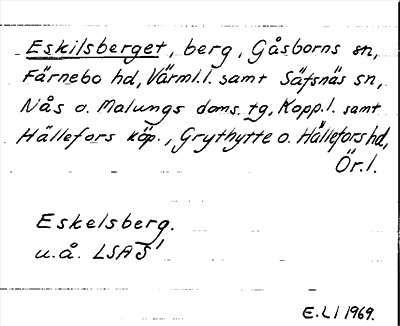 Eskilsberget, berg, Gåsborns sn,
Färnebo hd, Värml.l. samt Säfsnäs sn,
Nås o. Malungs doms.tg, Kopp.l. samt
Hällefors köp., Grythytte o. Hällefors hd,
Ör.l.
Eskelsberg.
u.å. LSA S1
E.L1 1969.